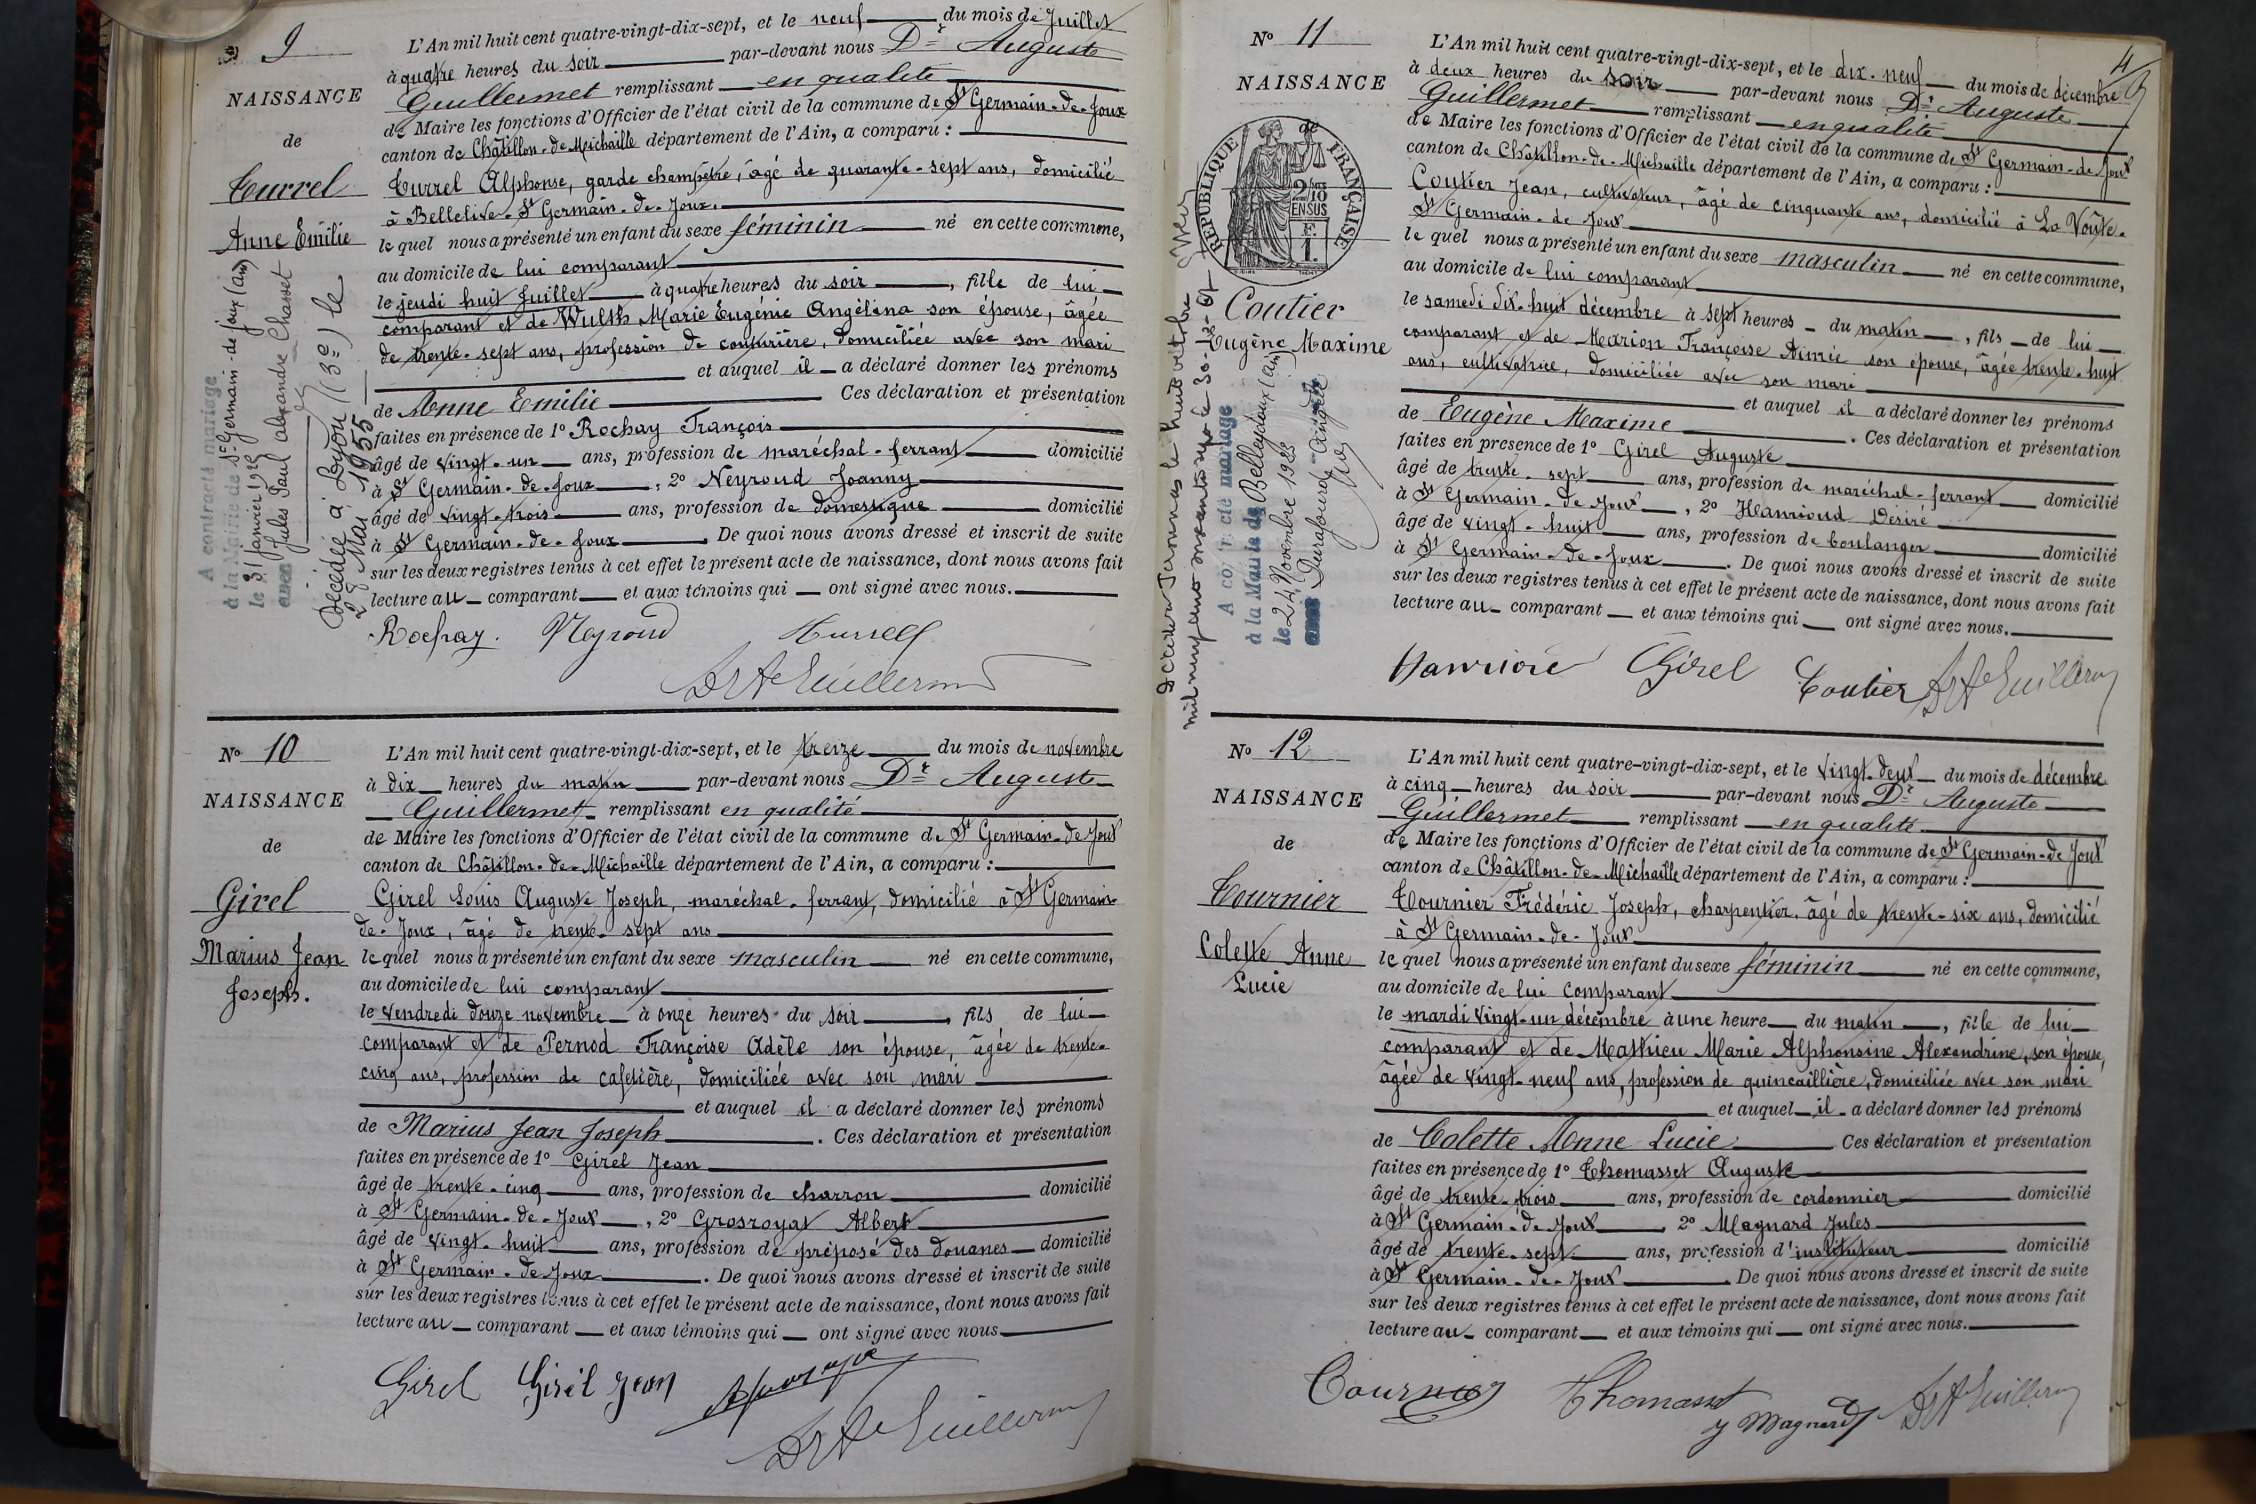 9
NAISSANCE
de
Turrel
Anne Emilie
A contracté mariage
à la Mairie de St Germain-de-joux (ain)
le 31 Janvier 1925
avec Jules Paul alexandre Chasset
Décédée à Lyon (3e) le
28 Mai 1955
L'An mil huit cent quatre-vingt-dix-sept, et le neuf du mois de Juillet
à quatre heures du soir par-devant nous Dr Auguste
Guillermet remplissant en qualité
de Maire les fonctions d'Officier de l'état civil de la commune de St Germain-de-Joux
canton de Châtillon-de-Michaille département de l'Ain, a comparu :
Turrel Alphonse, garde champêtre, âgé de quarante-sept ans, domicilié
à Bellerive-St Germain-de-Joux.
le quel nous a présenté un enfant du sexe féminin né en cette commune,
au domicile de lui comparant
le jeudi huit Juillet à quatre heures du soir, fille de lui
comparant et de Wulth Marie Eugénie Angélina son épouse, âgée
de trente-sept ans, profession de couturière, domiciliée avec son mari
et auquel il a déclaré donner les prénoms
de Anne Emilie Ces déclaration et présentation
faites en présence de 1o Rochay François
âgé de vingt-un ans, profession de maréchal-ferrant domicilié
à St Germain-de-Joux, 2o Neyroud Joanny
âgé de vingt-trois ans, profession de domestique domicilié
à St Germain-de-Joux. De quoi nous avons dressé et inscrit de suite
sur les deux registres tenus à cet effet le présent acte de naissance, dont nous avons fait
lecture au comparant et aux témoins qui ont signé avec nous.
Rochay. Neyroud Turrel
Dr Ate Guillermet
No 10
NAISSANCE
de
Girel
Marius Jean
Joseph.
L'An mil huit cent quatre-vingt-dix-sept, et le treize du mois de novembre
à dix heures du matin par-devant nous Dr Auguste
Guillermet remplissant en qualité
de Maire les fonctions d'Officier de l'état civil de la commune de St Germain-de-Joux
canton de Châtillon-de-Michaille département de l'Ain, a comparu :
Girel Louis Auguste Joseph, maréchal-ferrant, domicilié à St Germain-
de-Joux, âgé de trente-sept ans
le quel nous a présenté un enfant du sexe masculin né en cette commune,
au domicile de lui comparant
le vendredi douze novembre à onze heures du soir, fils de lui
comparant et de Pernod Françoise Adèle son épouse, âgée de trente-
cinq ans, profession de cafetière, domiciliée avec son mari
et auquel il a déclaré donner les prénoms
de Marius Jean Joseph. Ces déclaration et présentation
faites en présence de 1o Girel Jean
âgé de trente-cinq ans, profession de charron domicilié
à St Germain-de-Joux, 2o Grosroyat Albert
âgé de vingt-huit ans, profession de préposé des douanes domicilié
à St Germain-de-Joux. De quoi nous avons dressé et inscrit de suite
sur les deux registres tenus à cet effet le présent acte de naissance, dont nous avons fait
lecture au comparant et aux témoins qui ont signé avec nous
Girel Girel Jean
Dr Ate Guillermet
4
No 11
NAISSANCE
de
RÉPUBLIQUE FRANÇAISE
2/10
EN SUS
F.
1.
Coutier
Eugène Maxime
A contracté mariage
à la Mairie de Belleydoux (ain)
le 24 Novembre 1928
avec Durafourd Angèle
L'An mil huit cent quatre-vingt-dix-sept, et le dix-neuf du mois de décembre
à deux heures du soir par-devant nous Dr Auguste
Guillermet remplissant en qualité
de Maire les fonctions d'Officier de l'état civil de la commune de St Germain-de-Joux
canton de Châtillon-de-Michaille département de l'Ain, a comparu :
Coutier Jean, cultivateur, âgé de cinquante ans, domicilié à La Voûte-
St Germain-de-Joux
le quel nous a présenté un enfant du sexe masculin né en cette commune,
au domicile de lui comparant
le samedi dix-huit décembre à sept heures du matin, fils de lui
comparant et de Marion Françoise Aimée son épouse, âgée trente-huit
ans, cultivatrice, domiciliée avec son mari
et auquel il a déclaré donner les prénoms
de Eugène Maxime. Ces déclaration et présentation
faites en présence de 1o Girel Auguste
âgé de trente-sept ans, profession de maréchal-ferrant domicilié
à St Germain-de-Joux, 2o Hanrioud Désiré
âgé de vingt-huit ans, profession de boulanger domicilié
à St Germain-de-Joux. De quoi nous avons dressé et inscrit de suite
sur les deux registres tenus à cet effet le présent acte de naissance, dont nous avons fait
lecture au comparant et aux témoins qui ont signé avec nous.
Girel Coutier Dr Ate Guillermet
No 12
NAISSANCE
de
Tournier
Colette Anne
Lucie
L'An mil huit cent quatre-vingt-dix-sept, et le vingt-deux du mois de décembre
à cinq heures du soir par-devant nous Dr Auguste
Guillermet remplissant en qualité
de Maire les fonctions d'Officier de l'état civil de la commune de St Germain-de-Joux
canton de Châtillon-de-Michaille département de l'Ain, a comparu :
Tournier Frédéric Joseph, charpentier, âgé de trente-six ans, domicilié
à St Germain-de-Joux
le quel nous a présenté un enfant du sexe féminin né en cette commune,
au domicile de lui comparant
le mardi vingt-un décembre à une heure du matin, fille de lui
comparant et de Mathieu Marie Alphonsine Alexandrine, son épouse,
âgée de vingt-neuf ans, profession de quincaillière, domiciliée avec son mari
et auquel il a déclaré donner les prénoms
de Colette Anne Lucie Ces déclaration et présentation
faites en présence de 1o Thomasset Auguste
âgé de trente-trois ans, profession de cordonnier domicilié
à St Germain-de-Joux, 2o Magnard Jules
âgé de trente-sept ans, profession d'instituteur domicilié
à St Germain-de-Joux. De quoi nous avons dressé et inscrit de suite
sur les deux registres tenus à cet effet le présent acte de naissance, dont nous avons fait
lecture au comparant et aux témoins qui ont signé avec nous.
Tournier Thomasset J Magnard Dr Ate Guillermet